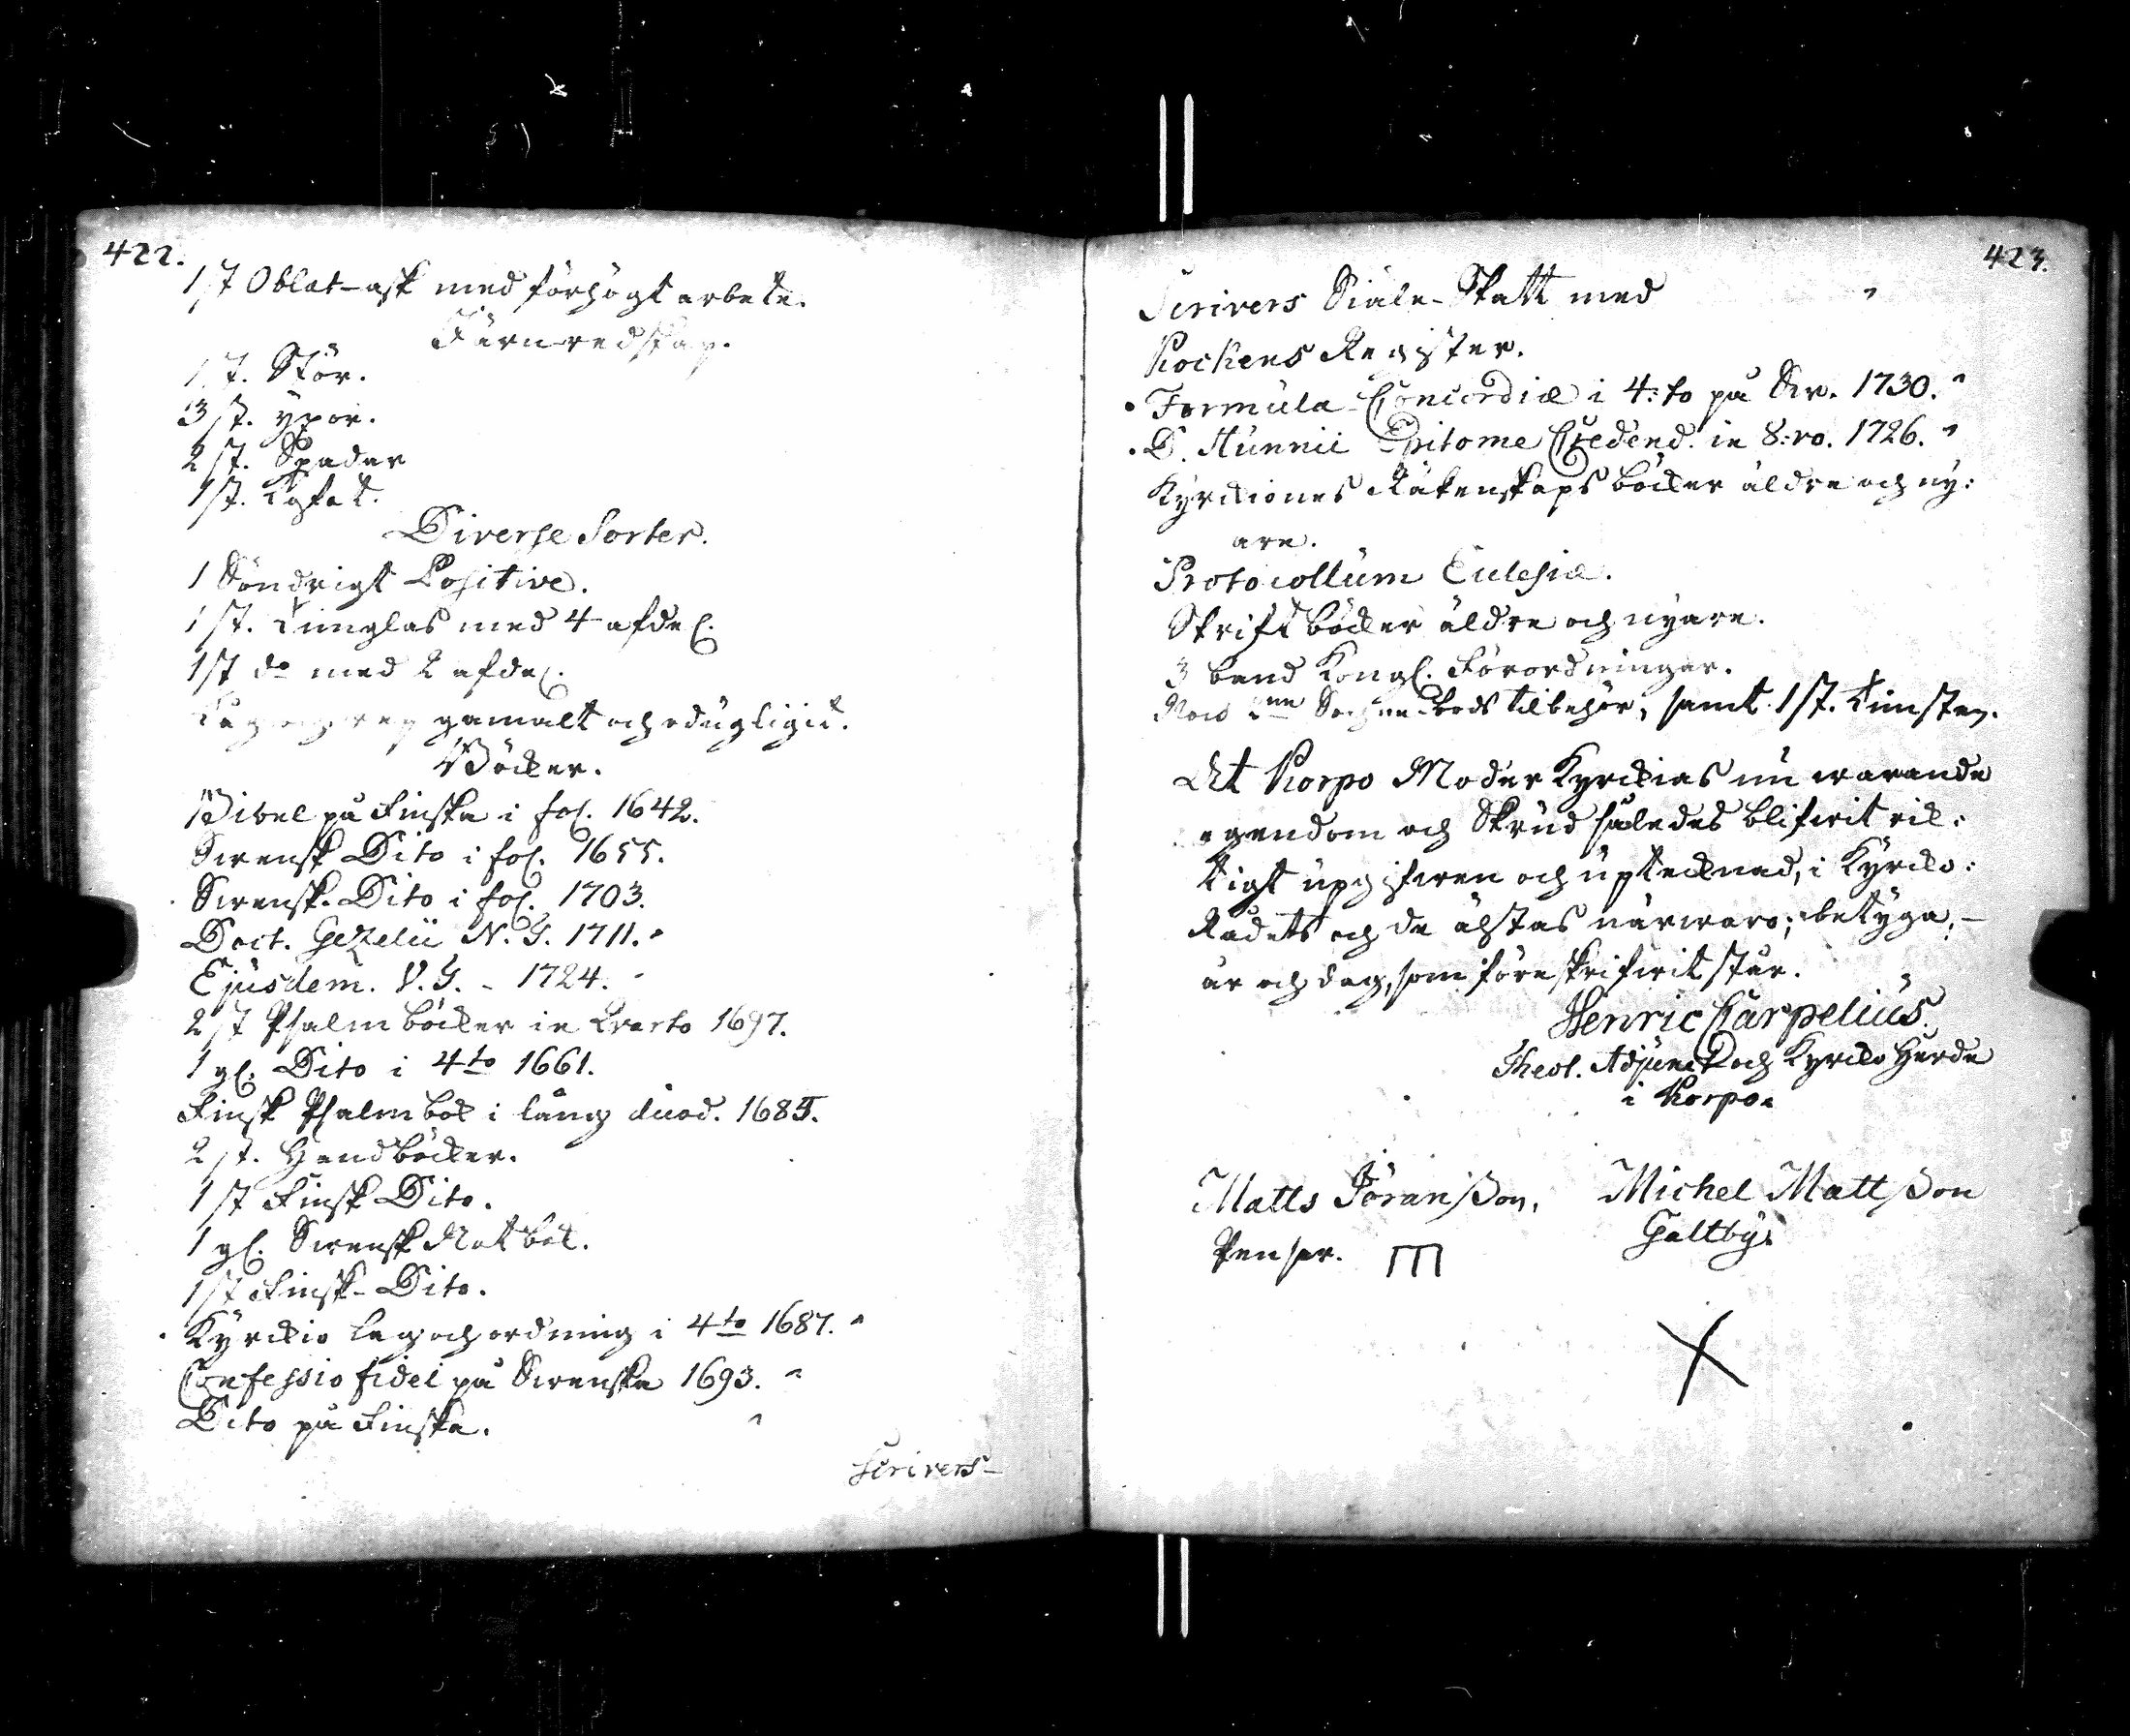 422.
1 st Oblat-ask med förhögt arbete.
Järn-redskap.
1 st. Stör.
3 st. yxor.
2 st. Spadar
1 st. Kofot.
Diverse Sorter.
1 Söndrigt Positive.
1 st. Timglas med 4 afdel.
1 st do med 2 afdel.
gamalt och odugligit.
Böcker.
Bibel på Finska i fol. 1642.
Swensk Dito i fol. 1655.
Swensk. Dito i fol. 1703.
Doct. Gezelii N. G. 1711.
Ejusdem. V. G. - 1724.
2 st Psalmböcker in Qvarto 1697.
1 gl. Dito i 4to 1661.
Finsk Psalmbok i lång duod. 1685.
2 st. Handböcker.
1 st Finsk Dito.
1 gl. Swensk Notbok.
1 st Finsk-Dito.
Kyrckio lag och ordning i 4to 1687.
Confessio fidei på Swenska 1693.
Dito på Finska.
Scrivers-
423.
Scrivers Siäle-Skatt med
Kockens Register.
Formula Concordiæ i 4:to på Sw. 1730.
D. Hunnii Epitome Credend. in 8:vo. 1726.
Kyrckiones Räkenskaps böcker äldre och ny:
are.
Protocollum Eclesiæ.
Skriftböcker äldre och nyare.
3 band Kongl. Förordningar.
tilbehör, samt 1 st. Timsten.
At Korpo Moder Kyrckias nu warande
egendom och Skrud således blifwit rick:
tigt upgifwen och uptecknad, i Kyrcko:
Rådets och de älstas närwaro; betyga,
år och dag, som föreskrifwit står.
Henric Carpelius.
Theol. Adjunct och Kyrcko Herde
i Korpo.
Matts Jöransson, Michel Mattsson
Pensar. Galtby.